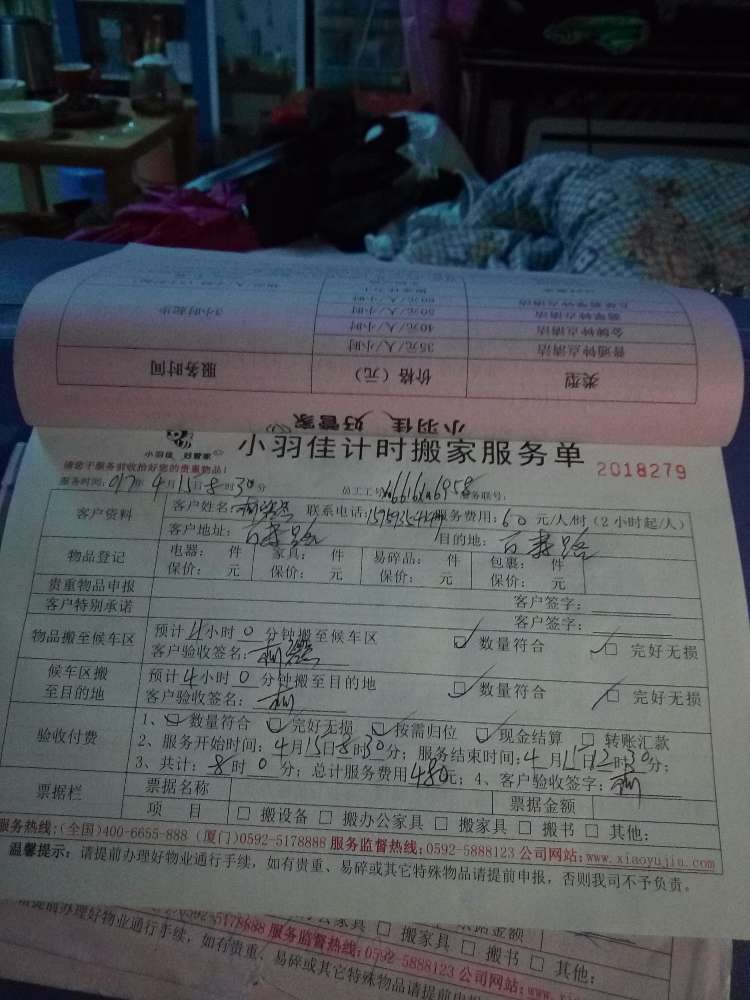 类型 价格（元） 服务时间
普通钟点清洁 35元/人/小时 3小时起步
金牌钟点清洁 40元/人/小时
翡翠钟点清洁 50元/人/小时
60元/人/小时
小羽佳 好管家
小羽佳 好管家
小羽佳计时搬家服务单 2018279
请您于服务前收拾好您的贵重物品！
服务时间：017年4月15日8时30分 员工工号： 服务联号：
客户资料 客户姓名： 联系电话： 服务费用：60元/人/时（2小时起/人）
客户地址： 目的地：
物品登记 电器： 件 家具： 件 易碎品： 件 包裹： 件
保价： 元 保价： 元 保价： 元 保价： 元
贵重物品申报 客户签字：
客户特别承诺 客户签字：
物品搬至候车区 预计4小时0分钟搬至候车区 数量符合 完好无损
客户验收签名：
候车区搬至目的地 预计4小时0分钟搬至目的地 数量符合 完好无损
客户验收签名：
验收付费 1、数量符合 完好无损 按需归位 现金结算 转账汇款
2、服务开始时间：4月15日8时30分；服务结束时间：4月15日12时30分；
3、共计：8时0分；总计服务费用480元；4、客户验收签字：
票据栏 票据名称 票据金额
项 目 搬设备 搬办公家具 搬家具 搬书 其他：
服务热线：(全国)400-6655-888 (厦门)0592-5178888 服务监督热线：0592-5888123 公司网站：www.xiaoyujia.com
温馨提示：请提前办理好物业通行手续，如有贵重、易碎或其它特殊物品请提前申报，否则我司不予负责。
公家具 搬家具 搬书 其他：
0592-5178888 服务监督热线：0592-5888123 公司网站
前办理好物业通行手续，如有贵重、易碎或其它特殊物品请提前申